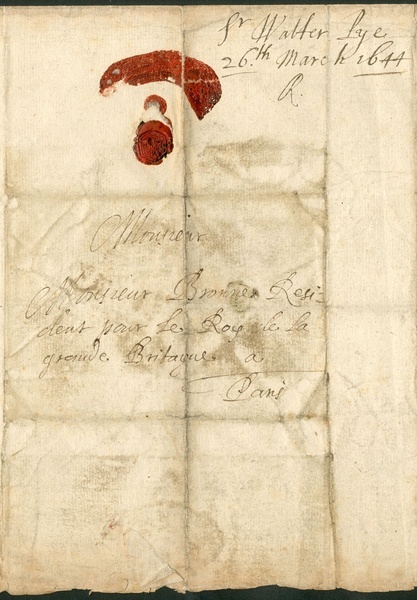 Sr Walter Pye
26th March 1644
R.
Monsieur
Monsieur Bronne Resi-
dent pour Le Roy de la
grande Britagne a
Paris